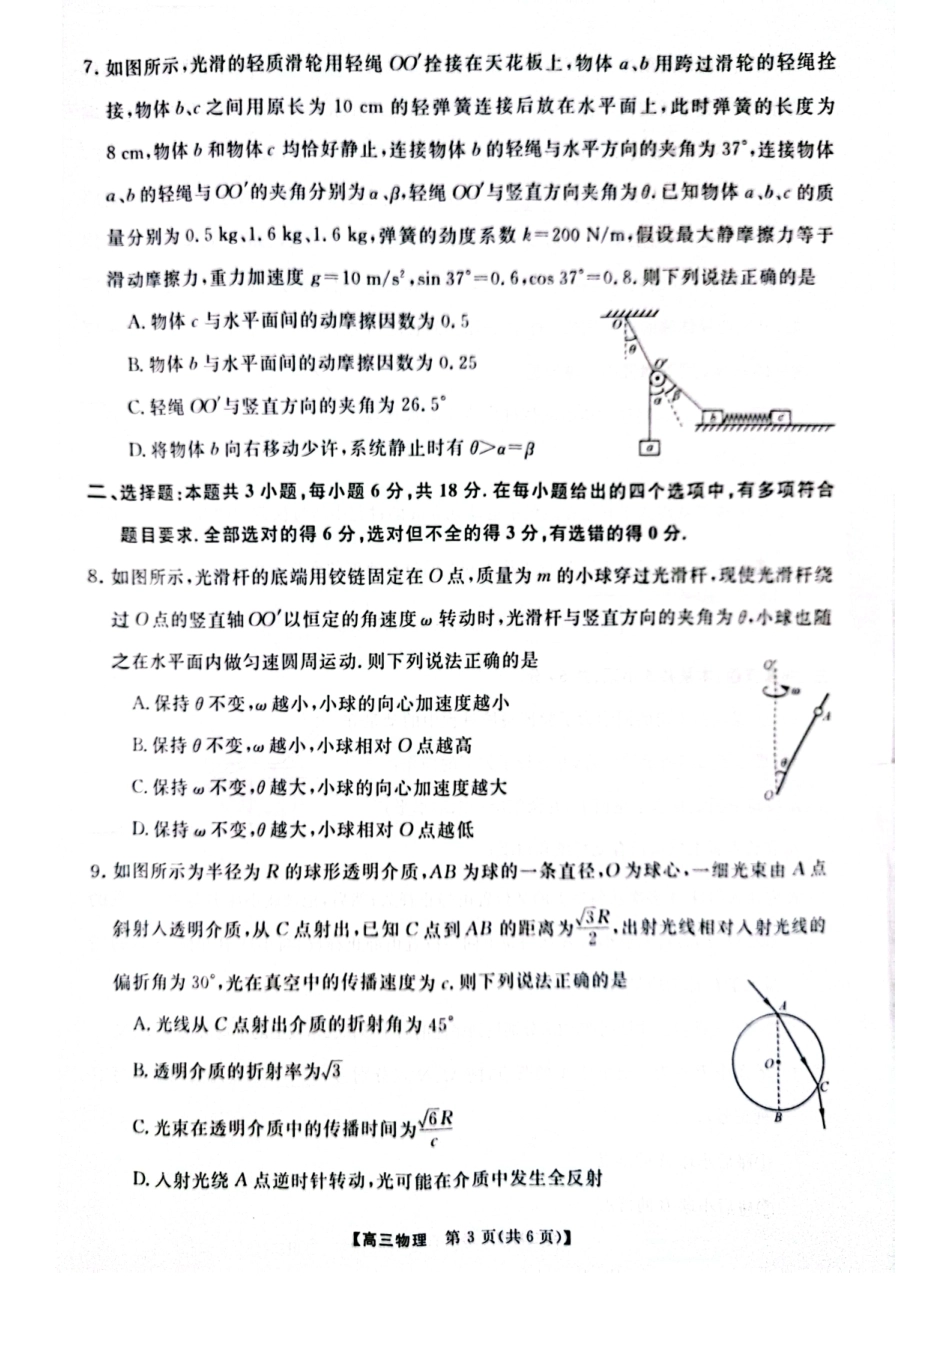 7. 如图所示,光滑的轻质滑轮用轻绳 OO′拴接在天花板上,物体 a、b 用跨过滑轮的轻绳拴
接,物体 b、c 之间用原长为 10 cm 的轻弹簧连接后放在水平面上,此时弹簧的长度为
8 cm,物体 b 和物体 c 均恰好静止,连接物体 b 的轻绳与水平方向的夹角为 37°,连接物体
a、b 的轻绳与 OO′的夹角分别为 α、β,轻绳 OO′与竖直方向夹角为 θ. 已知物体 a、b、c 的质
量分别为 0.5 kg、1.6 kg、1.6 kg,弹簧的劲度系数 k=200 N/m,假设最大静摩擦力等于
滑动摩擦力,重力加速度 g=10 m/s²,sin 37°=0.6,cos 37°=0.8. 则下列说法正确的是
A. 物体 c 与水平面间的动摩擦因数为 0.5
B. 物体 b 与水平面间的动摩擦因数为 0.25
C. 轻绳 OO′与竖直方向的夹角为 26.5°
D. 将物体 b 向右移动少许,系统静止时有 θ>α=β
O
θ
O′
β
α
b
c
a
二、选择题:本题共 3 小题,每小题 6 分,共 18 分. 在每小题给出的四个选项中,有多项符合
题目要求. 全部选对的得 6 分,选对但不全的得 3 分,有选错的得 0 分.
8. 如图所示,光滑杆的底端用铰链固定在 O 点,质量为 m 的小球穿过光滑杆,现使光滑杆绕
过 O 点的竖直轴 OO′以恒定的角速度 ω 转动时,光滑杆与竖直方向的夹角为 θ,小球也随
之在水平面内做匀速圆周运动. 则下列说法正确的是
A. 保持 θ 不变,ω 越小,小球的向心加速度越小
B. 保持 θ 不变,ω 越小,小球相对 O 点越高
C. 保持 ω 不变,θ 越大,小球的向心加速度越大
D. 保持 ω 不变,θ 越大,小球相对 O 点越低
O′
ω
A
θ
O
9. 如图所示为半径为 R 的球形透明介质,AB 为球的一条直径,O 为球心,一细光束由 A 点
斜射入透明介质,从 C 点射出,已知 C 点到 AB 的距离为√3R/2,出射光线相对入射光线的
偏折角为 30°,光在真空中的传播速度为 c. 则下列说法正确的是
A. 光线从 C 点射出介质的折射角为 45°
B. 透明介质的折射率为√3
C. 光束在透明介质中的传播时间为√6R/c
D. 入射光绕 A 点逆时针转动,光可能在介质中发生全反射
A
O
C
B
【高三物理 第 3 页(共 6 页)】